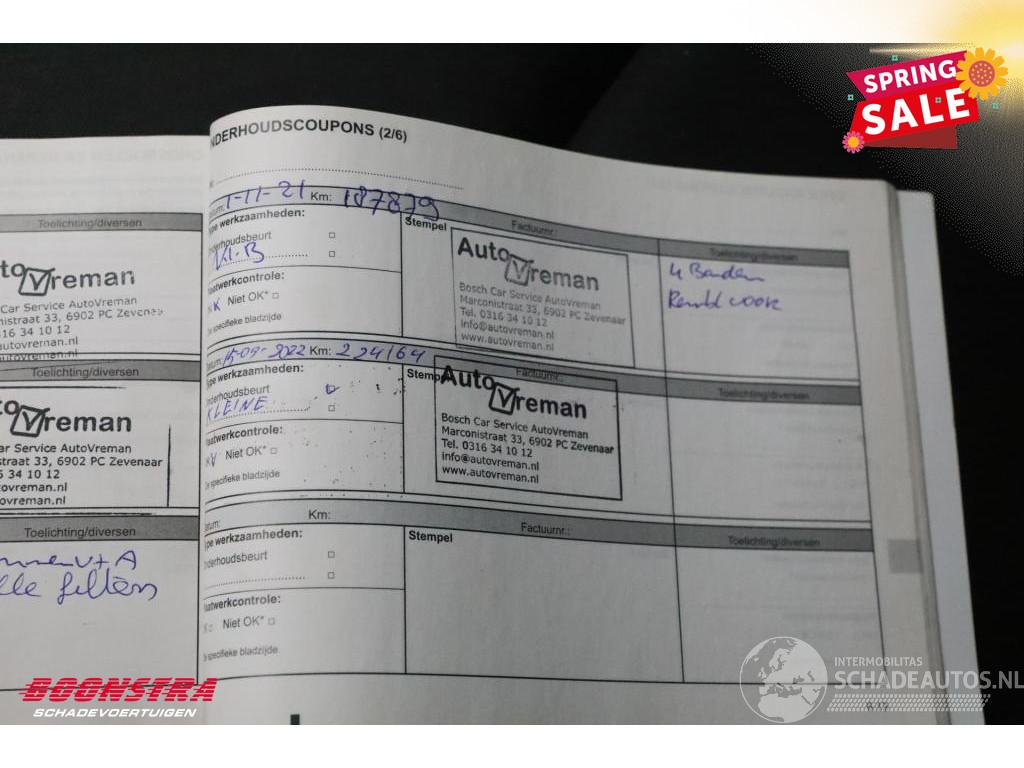 SPRING
SALE
NDERHOUDSCOUPONS (2/6)
Toelichting/diversen
to Vreman
Car Service AutoVreman
nistraat 33, 6902 PC Zevenaar
316 34 10 12
autovreman.nl
autovreman.nl
Toelichting/diversen
to Vreman
ar Service AutoVreman
straat 33, 6902 PC Zevenaar
6 34 10 12
tovreman.nl
ovreman.nl
Toelichting/diversen
V+A
lle filters
atum: 1-11-21 Km: 187879
ype werkzaamheden:
nderhoudsbeurt
Kl.B
aatwerkcontrole:
K Niet OK*
ie specifieke bladzijde
Stempel
Factuurnr.:
Auto Vreman
Bosch Car Service AutoVreman
Marconistraat 33, 6902 PC Zevenaar
Tel. 0316 34 10 12
info@autovreman.nl
www.autovreman.nl
Toelichting/diversen
4 Banden
Remblvoor
atum: 15-09-2022 Km: 224164
ype werkzaamheden:
nderhoudsbeurt
KLEINE
aatwerkcontrole:
K Niet OK*
ie specifieke bladzijde
Stempel
Factuurnr.:
Auto Vreman
Bosch Car Service AutoVreman
Marconistraat 33, 6902 PC Zevenaar
Tel. 0316 34 10 12
info@autovreman.nl
www.autovreman.nl
Toelichting/diversen
atum: Km:
ype werkzaamheden:
nderhoudsbeurt
aatwerkcontrole:
K Niet OK*
ie specifieke bladzijde
Stempel
Factuurnr.:
Toelichting/diversen
BOONSTRA
SCHADEVOERTUIGEN
INTERMOBILITAS
SCHADEAUTOS.NL